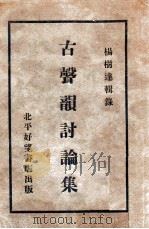 楊樹達輯錄
古聲韻討論集
北平好望書店出版
www.toutiaocun.com